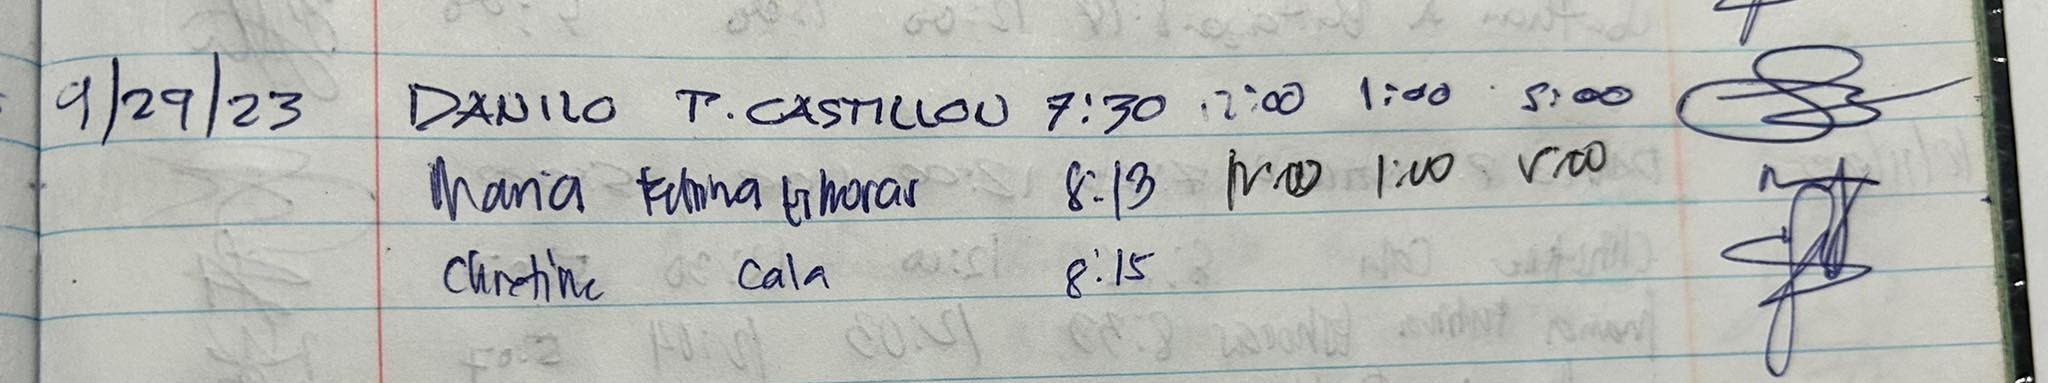 9/29/23 DANILO T. CASTILLON 7:30 12:00 1:00 5:00
Maria 8:13 12:00 1:00 5:00
Christine Cala 8:15